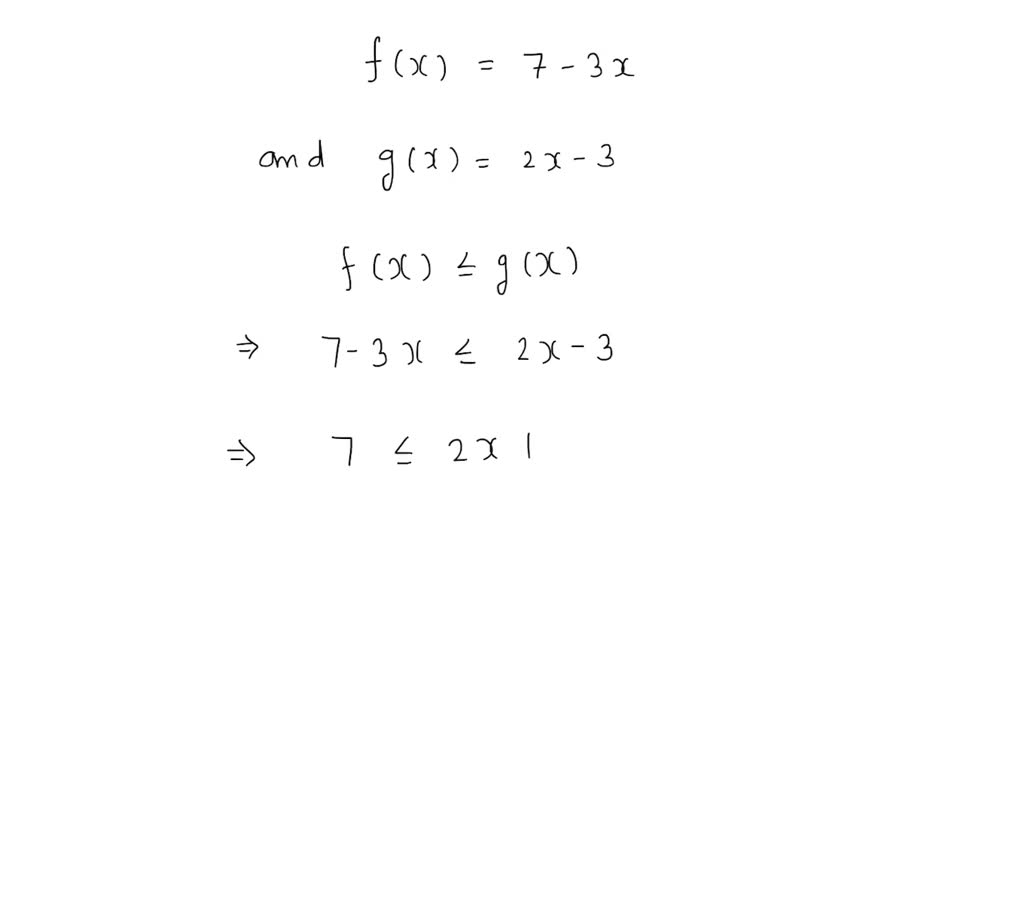 f(x) = 7 - 3x
and g(x) = 2x - 3
f(x) ≤ g(x)
⇒ 7 - 3x ≤ 2x - 3
⇒ 7 ≤ 2x |